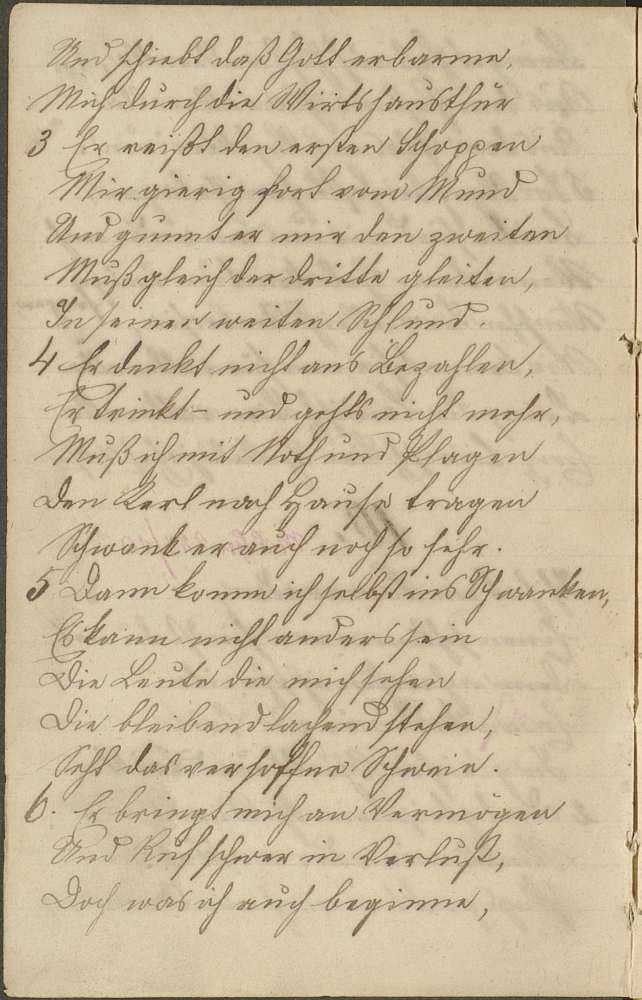 Und schiebt daß Gott erbarme,
Mich durch die Wirtshausthür
3 Er reißt den ersten Schoppen
Mir gierig fort vom Mund
Und gunnt er mir den zweiten
Muß gleich der dritte gleiten,
In seinen weiten Schlund.
4 Er denkt nicht ans Bezahlen,
Er trinkt – und gehts nicht mehr,
Muß ich mit Noth und Plagen
Den Kerl nach Hause tragen
Schwank er auch noch so sehr.
5 Dann komm ich selbst ins Schwanken,
Es kann nicht anders sein
Die Leute die mich sehen
Die bleibend lachend stehen,
Seht das versoffne Schwein.
6. Er bringt mich an Vermögen
Und Ruf schwer in Verlust,
Doch was ich auch beginne,